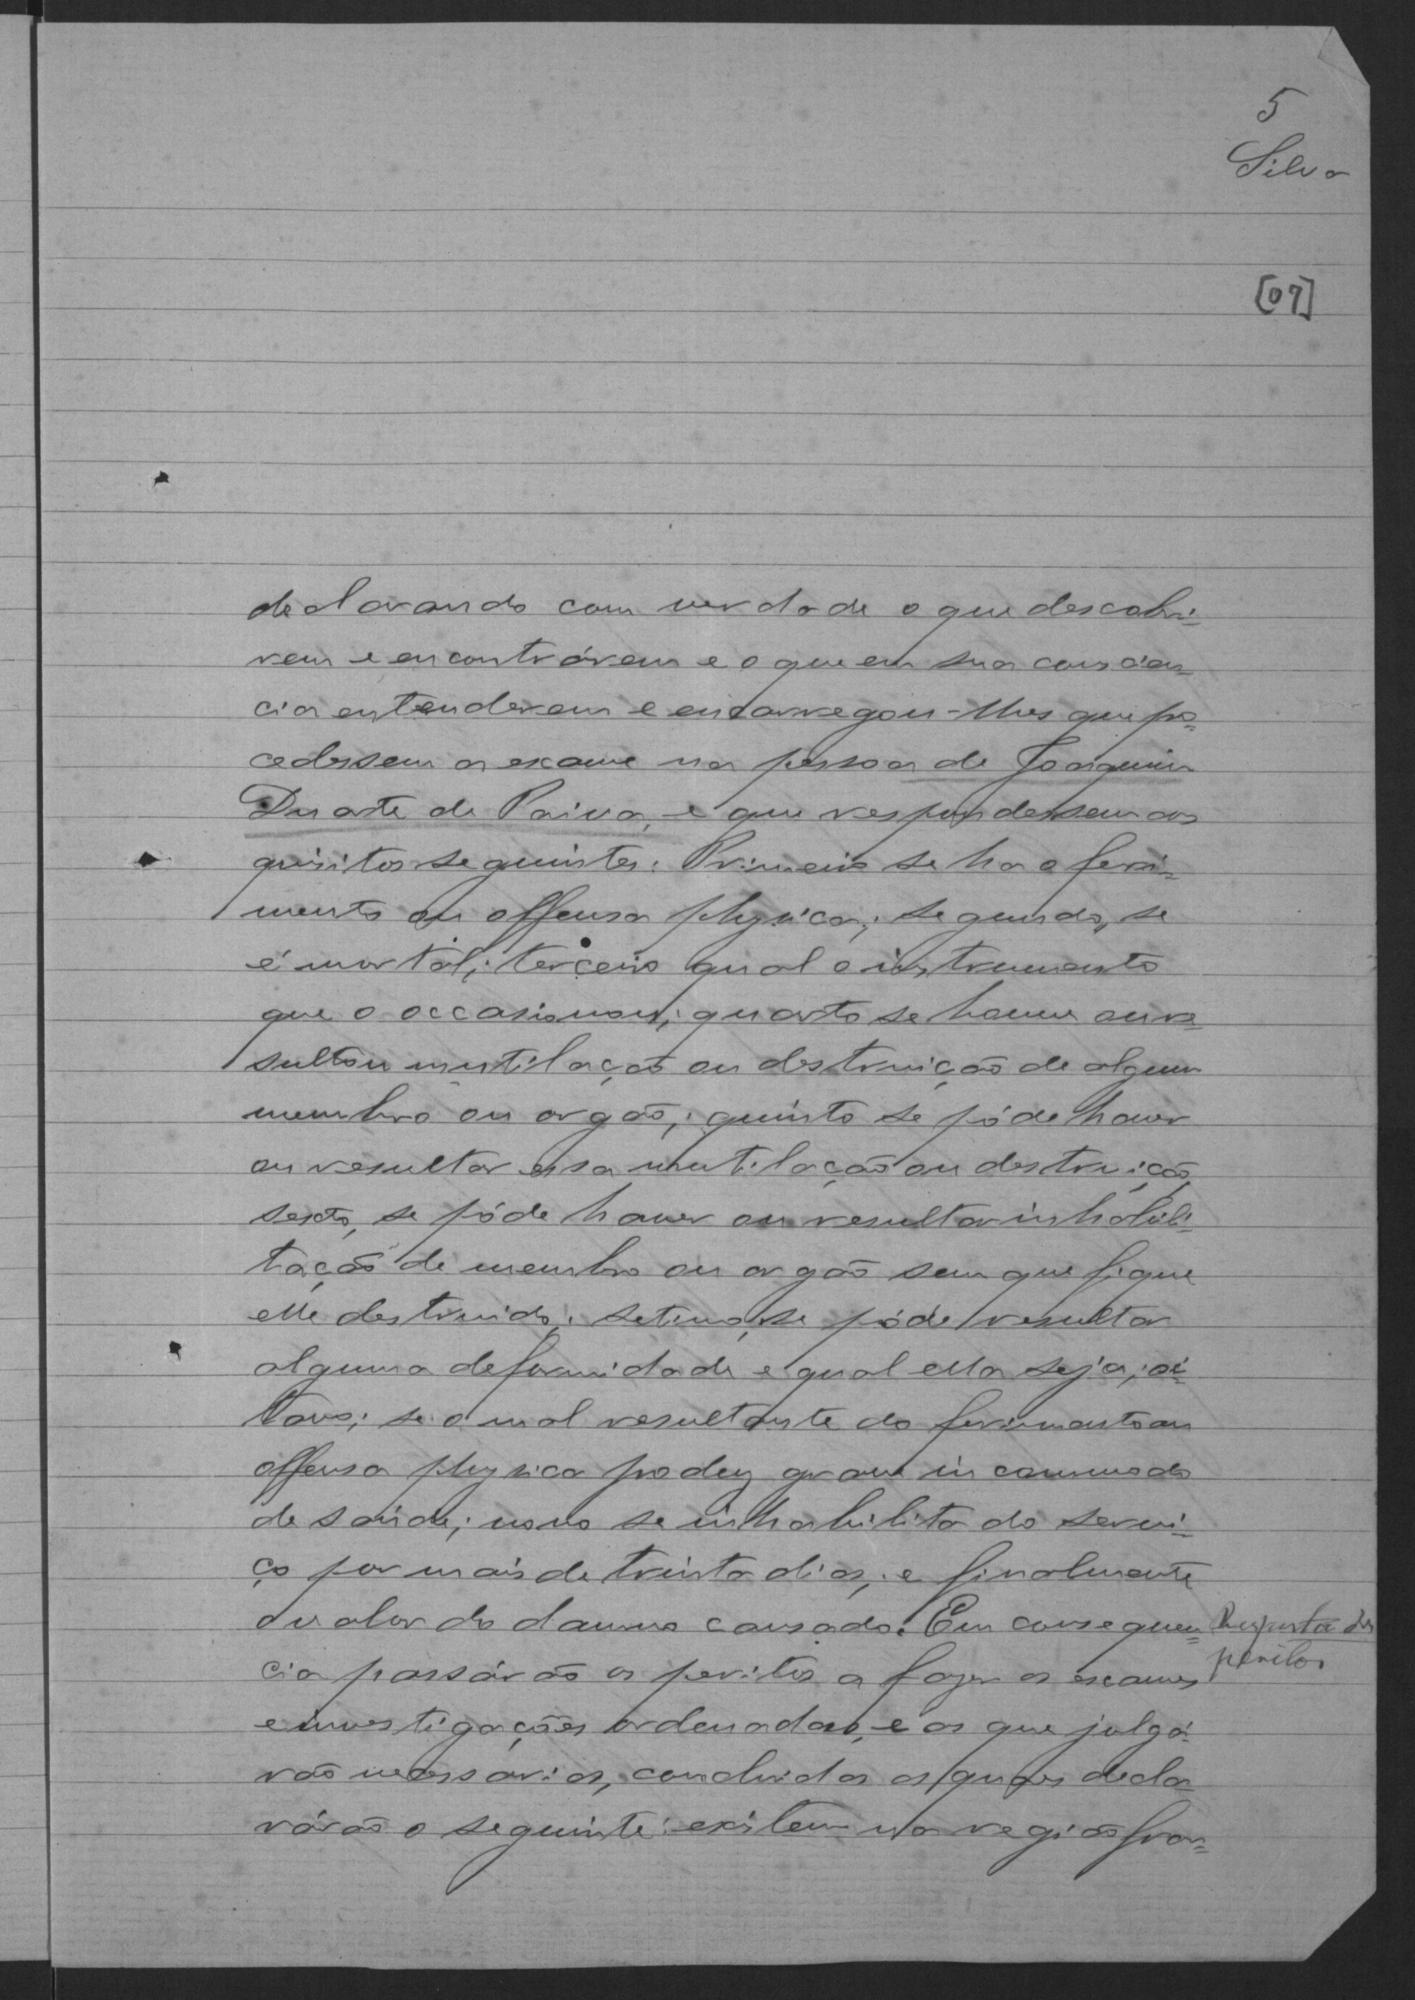 5
Silva
[07]
declarando com verdade o que descobri-
rem e encontrárem e o que em sua conscien-
cia entenderem e encarregou-lhes que pro-
cedessem a exame na pessoa de Joaquim
Duarte de Paiva, e que respondessem aos
quisitos seguintes: Primeiro se ha o feri-
mento ou offensa physica; segundo, se
é mortal; terceiro qual o instrumento
que o occasionou; quarto se houve ou re-
sultou mutilação ou destruição de algum
membro ou orgão; quinto se póde haver
ou resultar essa mutilação ou destruição,
sexto, se póde haver ou resultar inhabili-
tação de membro ou orgão sem que fique
elle destruido; setimo, se póde resultar
alguma deformidade e qual ella seja; oi-
tavo; se o mal resultante do ferimento ou
offensa physica produz grave incommodo
de saúde; nono se inhabilita do servi-
ço por mais de trinta dias; e finalmente
o valor do damno causado. Em consequen-
Resposta dos
peritos
cia passárão os peritos a fazer os exames
e investigações ordenadas, e as que julgá-
rão necessarias, concluidas as quaes decla-
rárão o seguinte: exitem na região fron-